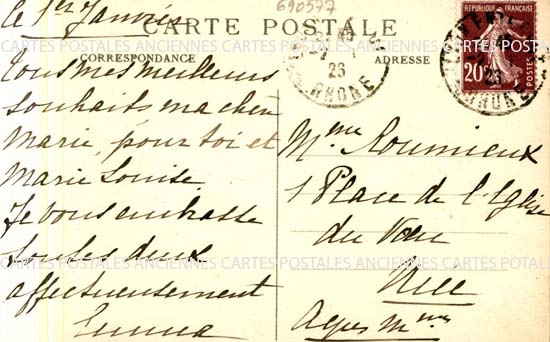 690577
le 1er Janvier
CARTE POSTALE
CORRESPONDANCE
ADRESSE
RHONE
23
REPUBLIQUE FRANÇAISE
20c
POSTES
RHONE
23
Tous mes meilleurs
souhaits ma chère
Marie, pour toi et
Marie Louise.
Je vous embrasse
toutes deux
affectueusement
Emma
Mme Roumieux
1 Place de l'Eglise
du Vœu
Nice
Alpes Mmes
CARTES POSTALES ANCIENNES CARTES POSTALES ANCIENNES CARTES POSTALES
CARTES POSTALES ANCIENNES CARTES POSTALES ANCIENNES CARTES POTALES